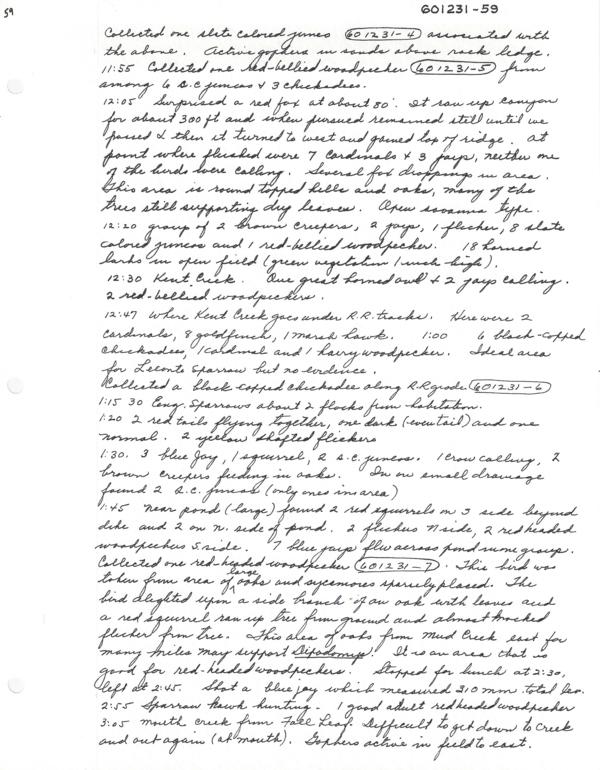 59
601231-59
Collected one slate colored junco 601231-4 associated with
the above. Active gophers in sands above rock ledge.
11:55 Collected one red-bellied woodpecker 601231-5 from
among 6 S.C. juncos & 3 chickadees.
12:05 Surprised a red fox at about 80'. It ran up canyon
for about 300 ft and when pursued remained still until we
passed & then it turned to west and gained top of ridge. At
point where flushed were 7 cardinals & 3 jays, neither one
of the birds were calling. Several fox droppings in area.
This area is round topped hills and oaks, many of the
trees still supporting dry leaves. Open savanna type.
12:20 group of 2 brown creepers, 2 jays, 1 flicker, 8 slate
colored juncos and 1 red-bellied woodpecker. 18 horned
larks in open field (green vegetation 1 inch high).
12:30 Kent Creek. One great horned owl & 2 jays calling.
2 red-bellied woodpeckers.
12:47 Where Kent Creek goes under R.R. tracks. Here were 2
cardinals, 8 goldfinch, 1 marsh hawk. 1:00 6 black-capped
chickadees, 1 cardinal and 1 hairy woodpecker. Ideal area
for Leconte Sparrow but no evidence.
Collected a black capped chickadee along R.R. grade 601231-6
1:15 30 Eng. Sparrows about 2 flocks from habitation.
1:20 2 red tails flying together, one dark (even tail) and one
normal. 2 yellow shafted flickers
1:30. 3 blue Jay, 1 squirrel, 2 S.C. juncos. 1 crow calling, 2
brown creepers feeding in oaks. In one small drainage
found 2 S.C. juncos (only ones in area)
1:45 near pond (large) found 2 red squirrels on S side beyond
dike and 2 on N. side of pond. 2 flickers N side, 2 red headed
woodpeckers S. side. 7 blue jays flew across pond in one group.
Collected one red-headed woodpecker 601231-7. This bird was
taken from area of large oaks and sycamores sparsely placed. The
bird alighted upon a side branch of an oak with leaves and
a red squirrel ran up tree from ground and almost knocked
flicker from tree. This area of oaks from Mud Creek east for
many miles may support Dipodomys. It is an area that is
good for red-headed woodpeckers. Stopped for lunch at 2:30,
left at 2:45. Shot a blue jay which measured 310 mm total
2:55 Sparrow Hawk hunting. 1 good adult red headed woodpecker
3:05 mouth creek from Fall Leaf. Difficult to get down to creek
and out again (at mouth). Gophers active in field to east.